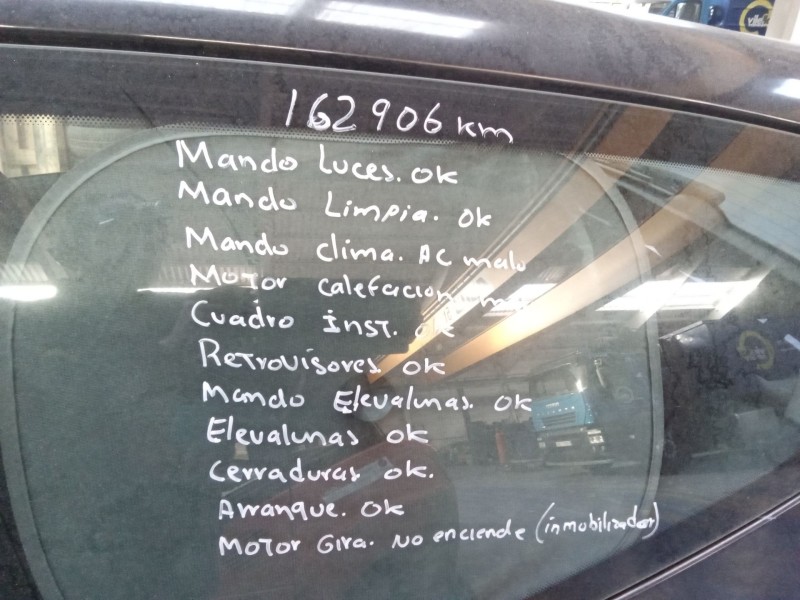 162906 km
Mando Luces. ok
Mando Limpia. ok
Mando clima. AC malo
Motor calefacion
Cuadro inst. ok
Retrovisores ok
Mando Elevalunas. ok
Elevalunas ok
Cerraduras ok.
Arranque. ok
Motor Gira. No enciende (inmobilizador)